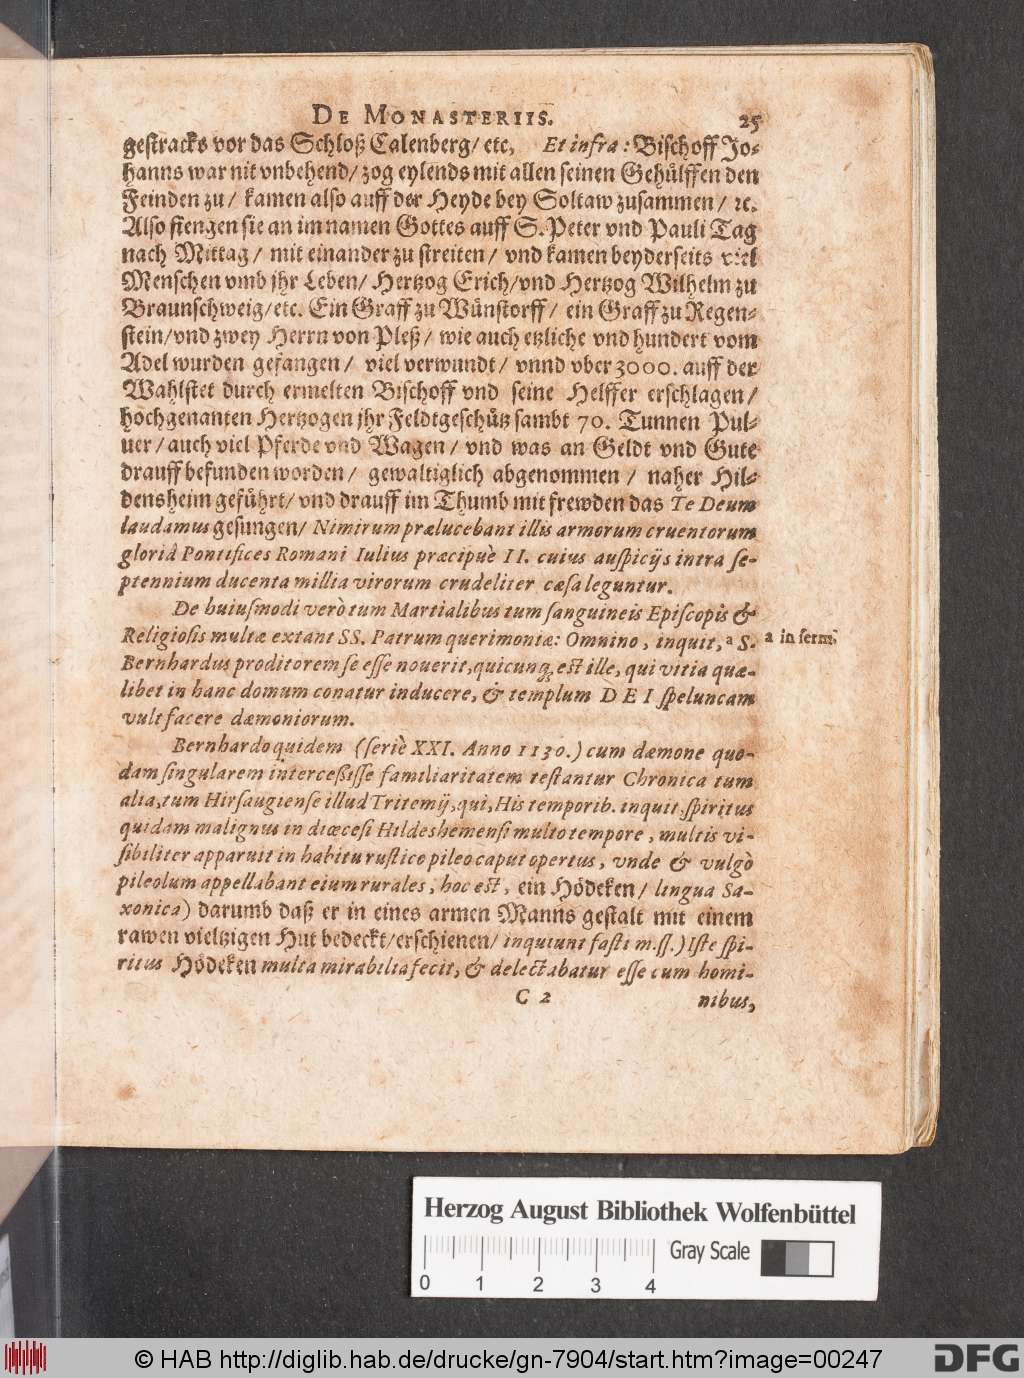 DE MONASTERIIS. 25
gestracks vor das Schloß Calenberg/ etc, Et infra: Bischoff Jo-
hanns war nit vnbehend/ zog eylends mit allen seinen Gehülffen den
Feinden zu/ kamen also auff der Heyde bey Soltaw zusammen/ ꝛc.
Also fiengen sie an im namen Gottes auff S. Peter vnd Pauli Tag
nach Mittag/ mit einander zu streiten/ vnd kamen beyderseits viel
Menschen vmb jhr Leben/ Hertzog Erich/ vnd Hertzog Wilhelm zu
Braunschweig/ etc. Ein Graff zu Wünstorff/ ein Graff zu Regen-
stein/ vnd zwey Herrn von Pleß/ wie auch etzliche vnd hundert vom
Adel wurden gefangen/ viel verwundt/ vnnd vber 3000. auff der
Wahlstet durch ermelten Bischoff vnd seine Helffer erschlagen/
hochgenanten Hertzogen jhr Feldtgeschütz sambt 70. Tunnen Pul-
uer/ auch viel Pferde vnd Wagen/ vnd was an Geldt vnd Gute
drauff befunden worden/ gewaltiglich abgenommen/ naher Hil-
densheim geführt/ vnd drauff im Thumb mit frewden das Te Deum
laudamus gesungen/ Nimirum prælucebant illis armorum cruentorum
gloriâ Pontifices Romani Iulius præcipuè II. cuius auspicijs intra se-
ptennium ducenta millia virorum crudeliter cæsa leguntur.
De huiusmodi verò tum Martialibus tum sanguineis Episcopis &
Religiosis multæ extant SS. Patrum querimoniæ: Omnino, inquit, ᵃ S.
a in serm.
Bernhardus proditorem se esse nouerit, quicunq; est ille, qui vitia quæ-
libet in hanc domum conatur inducere, & templum DEI speluncam
vult facere dæmoniorum.
Bernhardo quidem (seriè XXI. Anno 1130.) cum dæmone quo-
dam singularem intercessisse familiaritatem testantur Chronica tum
alia, tum Hirsaugiense illud Tritemij, qui, His temporib. inquit, spiritus
quidam malignus in diœcesi Hildeshemensi multo tempore, multis vi-
sibiliter apparuit in habitu rustico pileo caput opertus, vnde & vulgò
pileolum appellabant eium rurales, hoc est, ein Hödeken/ lingua Sa-
xonica) darumb daß er in eines armen Manns gestalt mit einem
rawen vieltzigen Hut bedeckt/ erschienen/ inquiunt fasti m. ss.) Iste spi-
ritus Hödeken multa mirabilia fecit, & delectabatur esse cum homi-
C 2 nibus,
Herzog August Bibliothek Wolfenbüttel
Gray Scale
0 1 2 3 4
© HAB http://diglib.hab.de/drucke/gn-7904/start.htm?image=00247
DFG